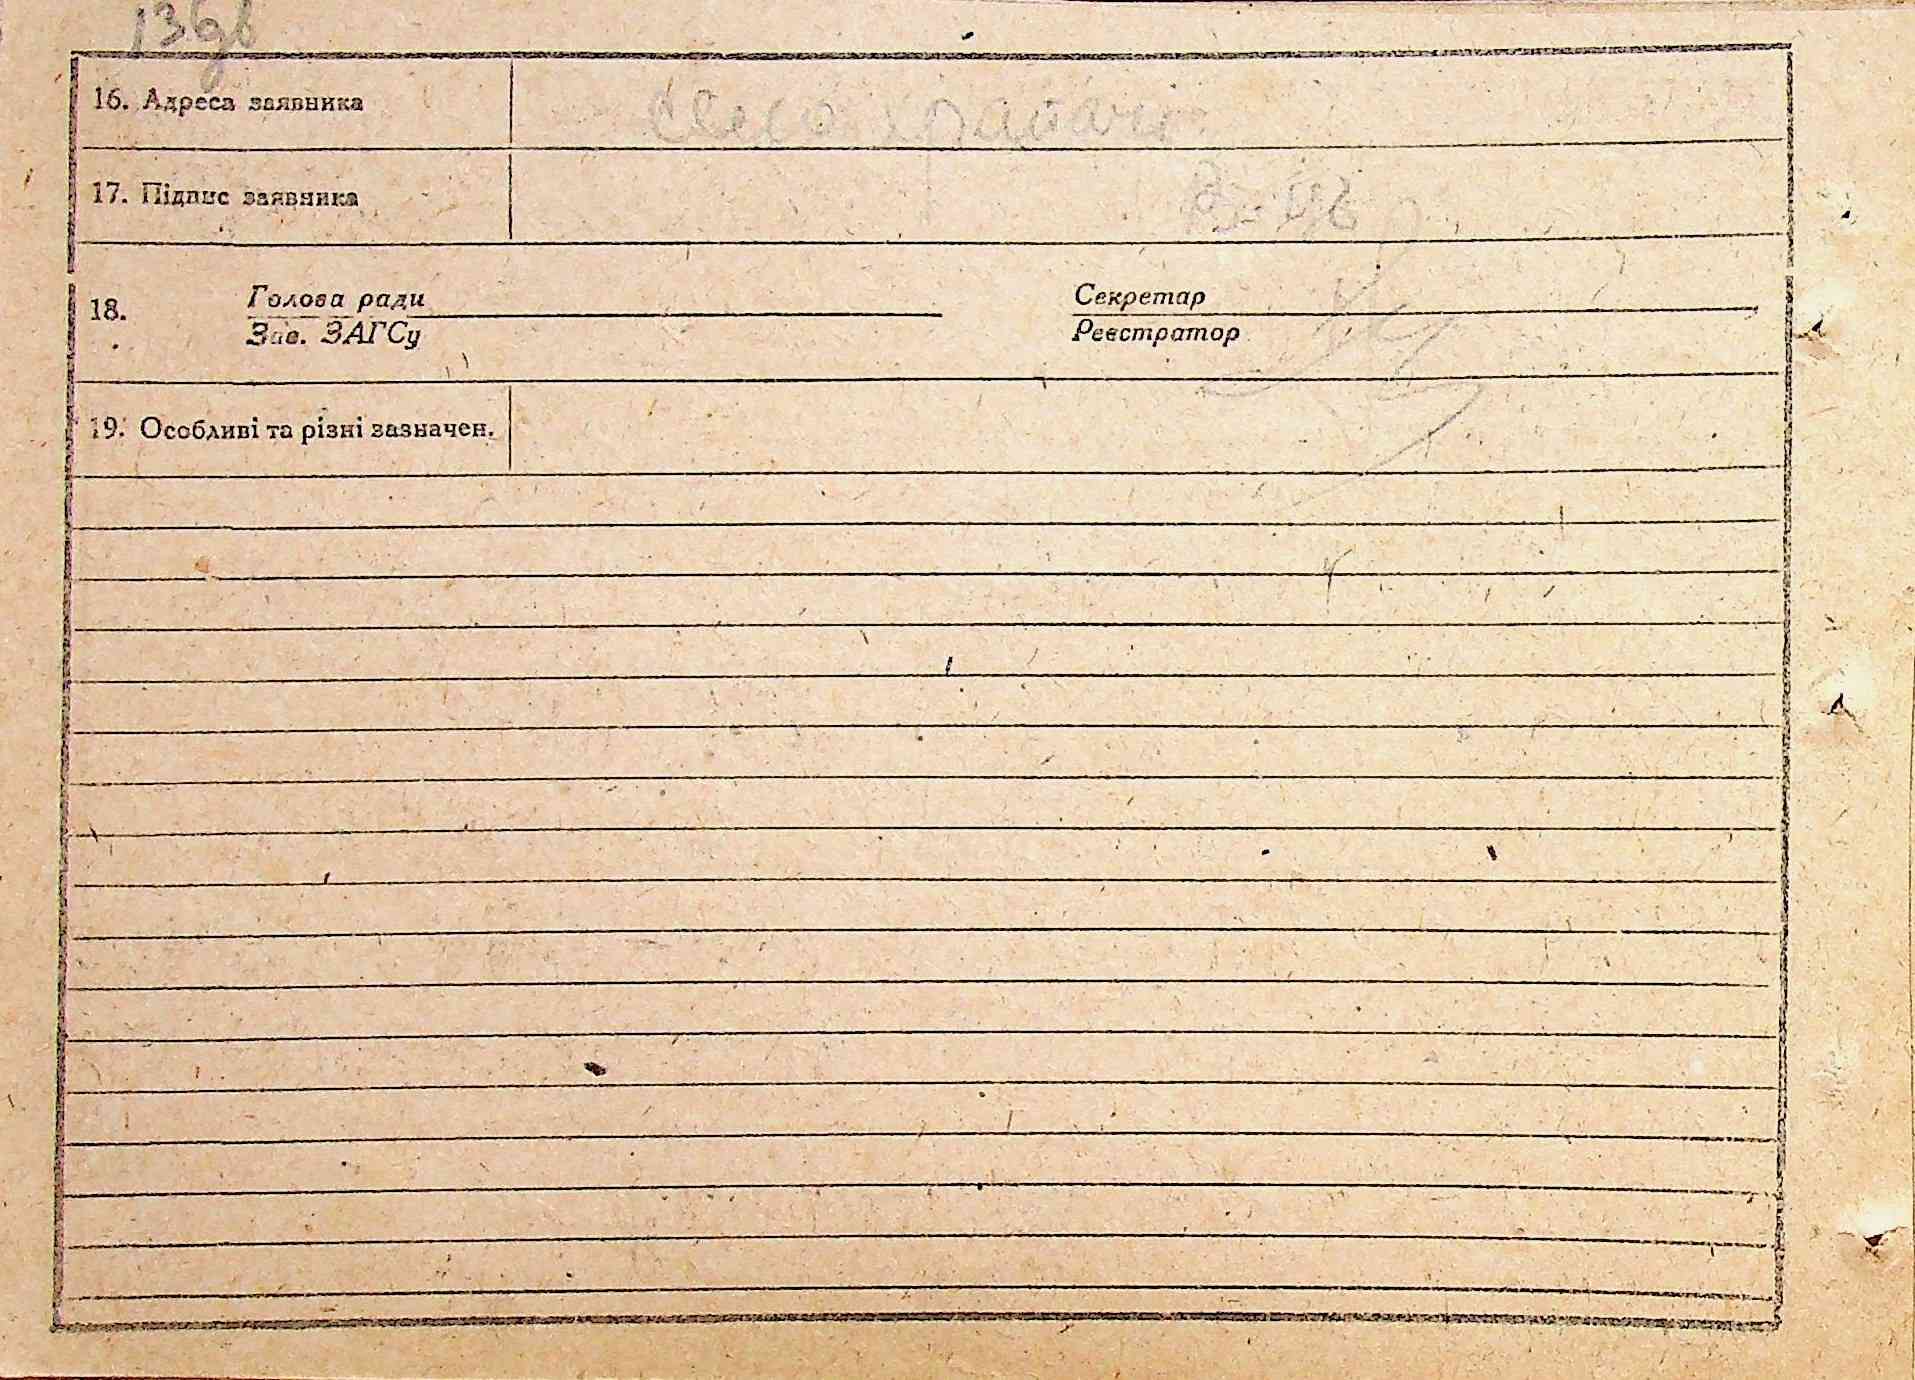 16. Адреса заявника село
17. Підпис заявника
18. Голова ради Секретар
Зав. ЗАГСу Реєстратор
19. Особливі та різні зазначен.